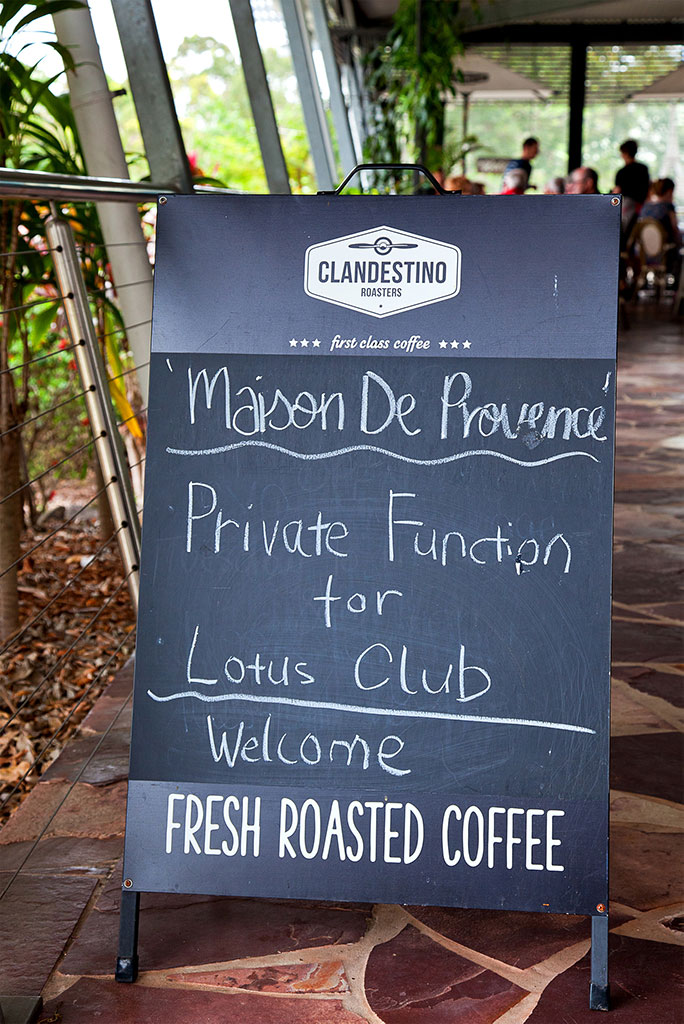 CLANDESTINO
ROASTERS
★★★ first class coffee ★★★
'Maison De Provence'
Private Function
for
Lotus Club
Welcome
FRESH ROASTED COFFEE